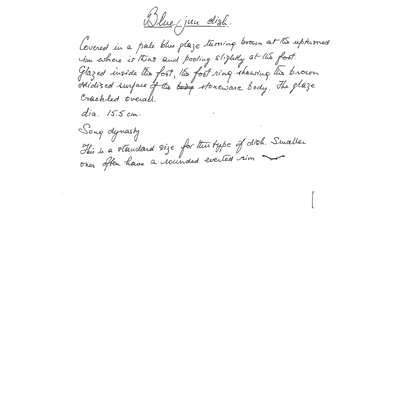 Blue jun dish.
Covered in a pale blue glaze turning brown at the upturned
rim where is thins and pooling slightly at the foot.
Glazed inside the foot, the foot ring showing the brown
oxidised surface of the body stoneware body. The glaze
crackled overall.
dia. 15.5 cm.
Song dynasty
This is a standard size for this type of dish. Smaller
ones often have a rounded everted rim